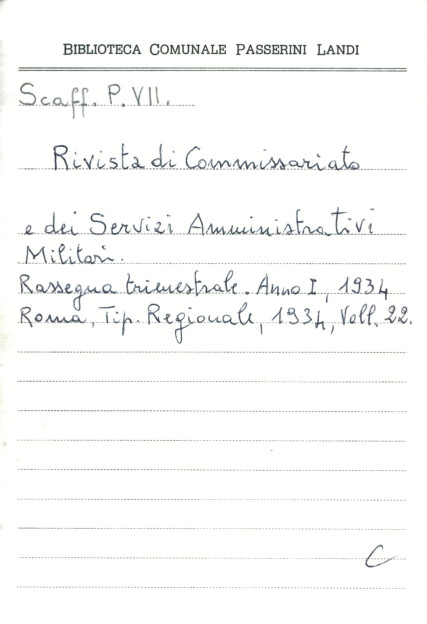 BIBLIOTECA COMUNALE PASSERINI LANDI
Scaff. P. VII.
Rivista di Commissariato
e dei Servizi Amministrativi
Militari.
Rassegna trimestrale. Anno I, 1934
Roma, Tip. Regionale, 1934, Voll. 22.
C